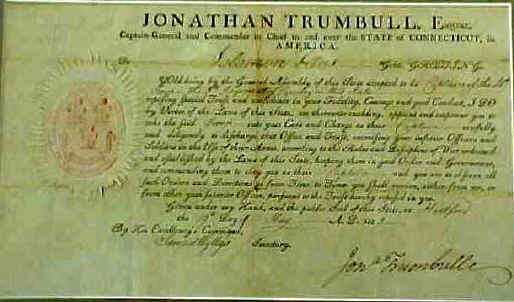 JONATHAN TRUMBULL, Esquire,
Captain-General and Commander in Chief in and over the STATE of CONNECTICUT, in
AMERICA.
To Gent. GREETING.
YOU being by the General Assembly of this State accepted to be Captain of the
reposing special Trust and Confidence in your Fidelity, Courage and good Conduct, I DO
by Virtue of the Laws of this State, me thereunto enabling, appoint and impower you to
take the said into your Care and Charge as their carefully
and diligently to discharge that Office and Trust, exercising your inferior Officers and
Soldiers in the Use of their Arms, according to the Rules and Discipline of War, ordained
and established by the Laws of this State, keeping them in good Order and Government,
and commanding them to obey you as their Captain and you are to observe all
such Orders and Directions as from Time to Time you shall receive, either from me, or
from other your superior Officer, pursuant to the Trust hereby reposed in you.
Given under my Hand, and the public Seal of this State, at Hartford
the Day of May A. D.
By His Excellency's Command,
Secretary.
Jonth Trumbull